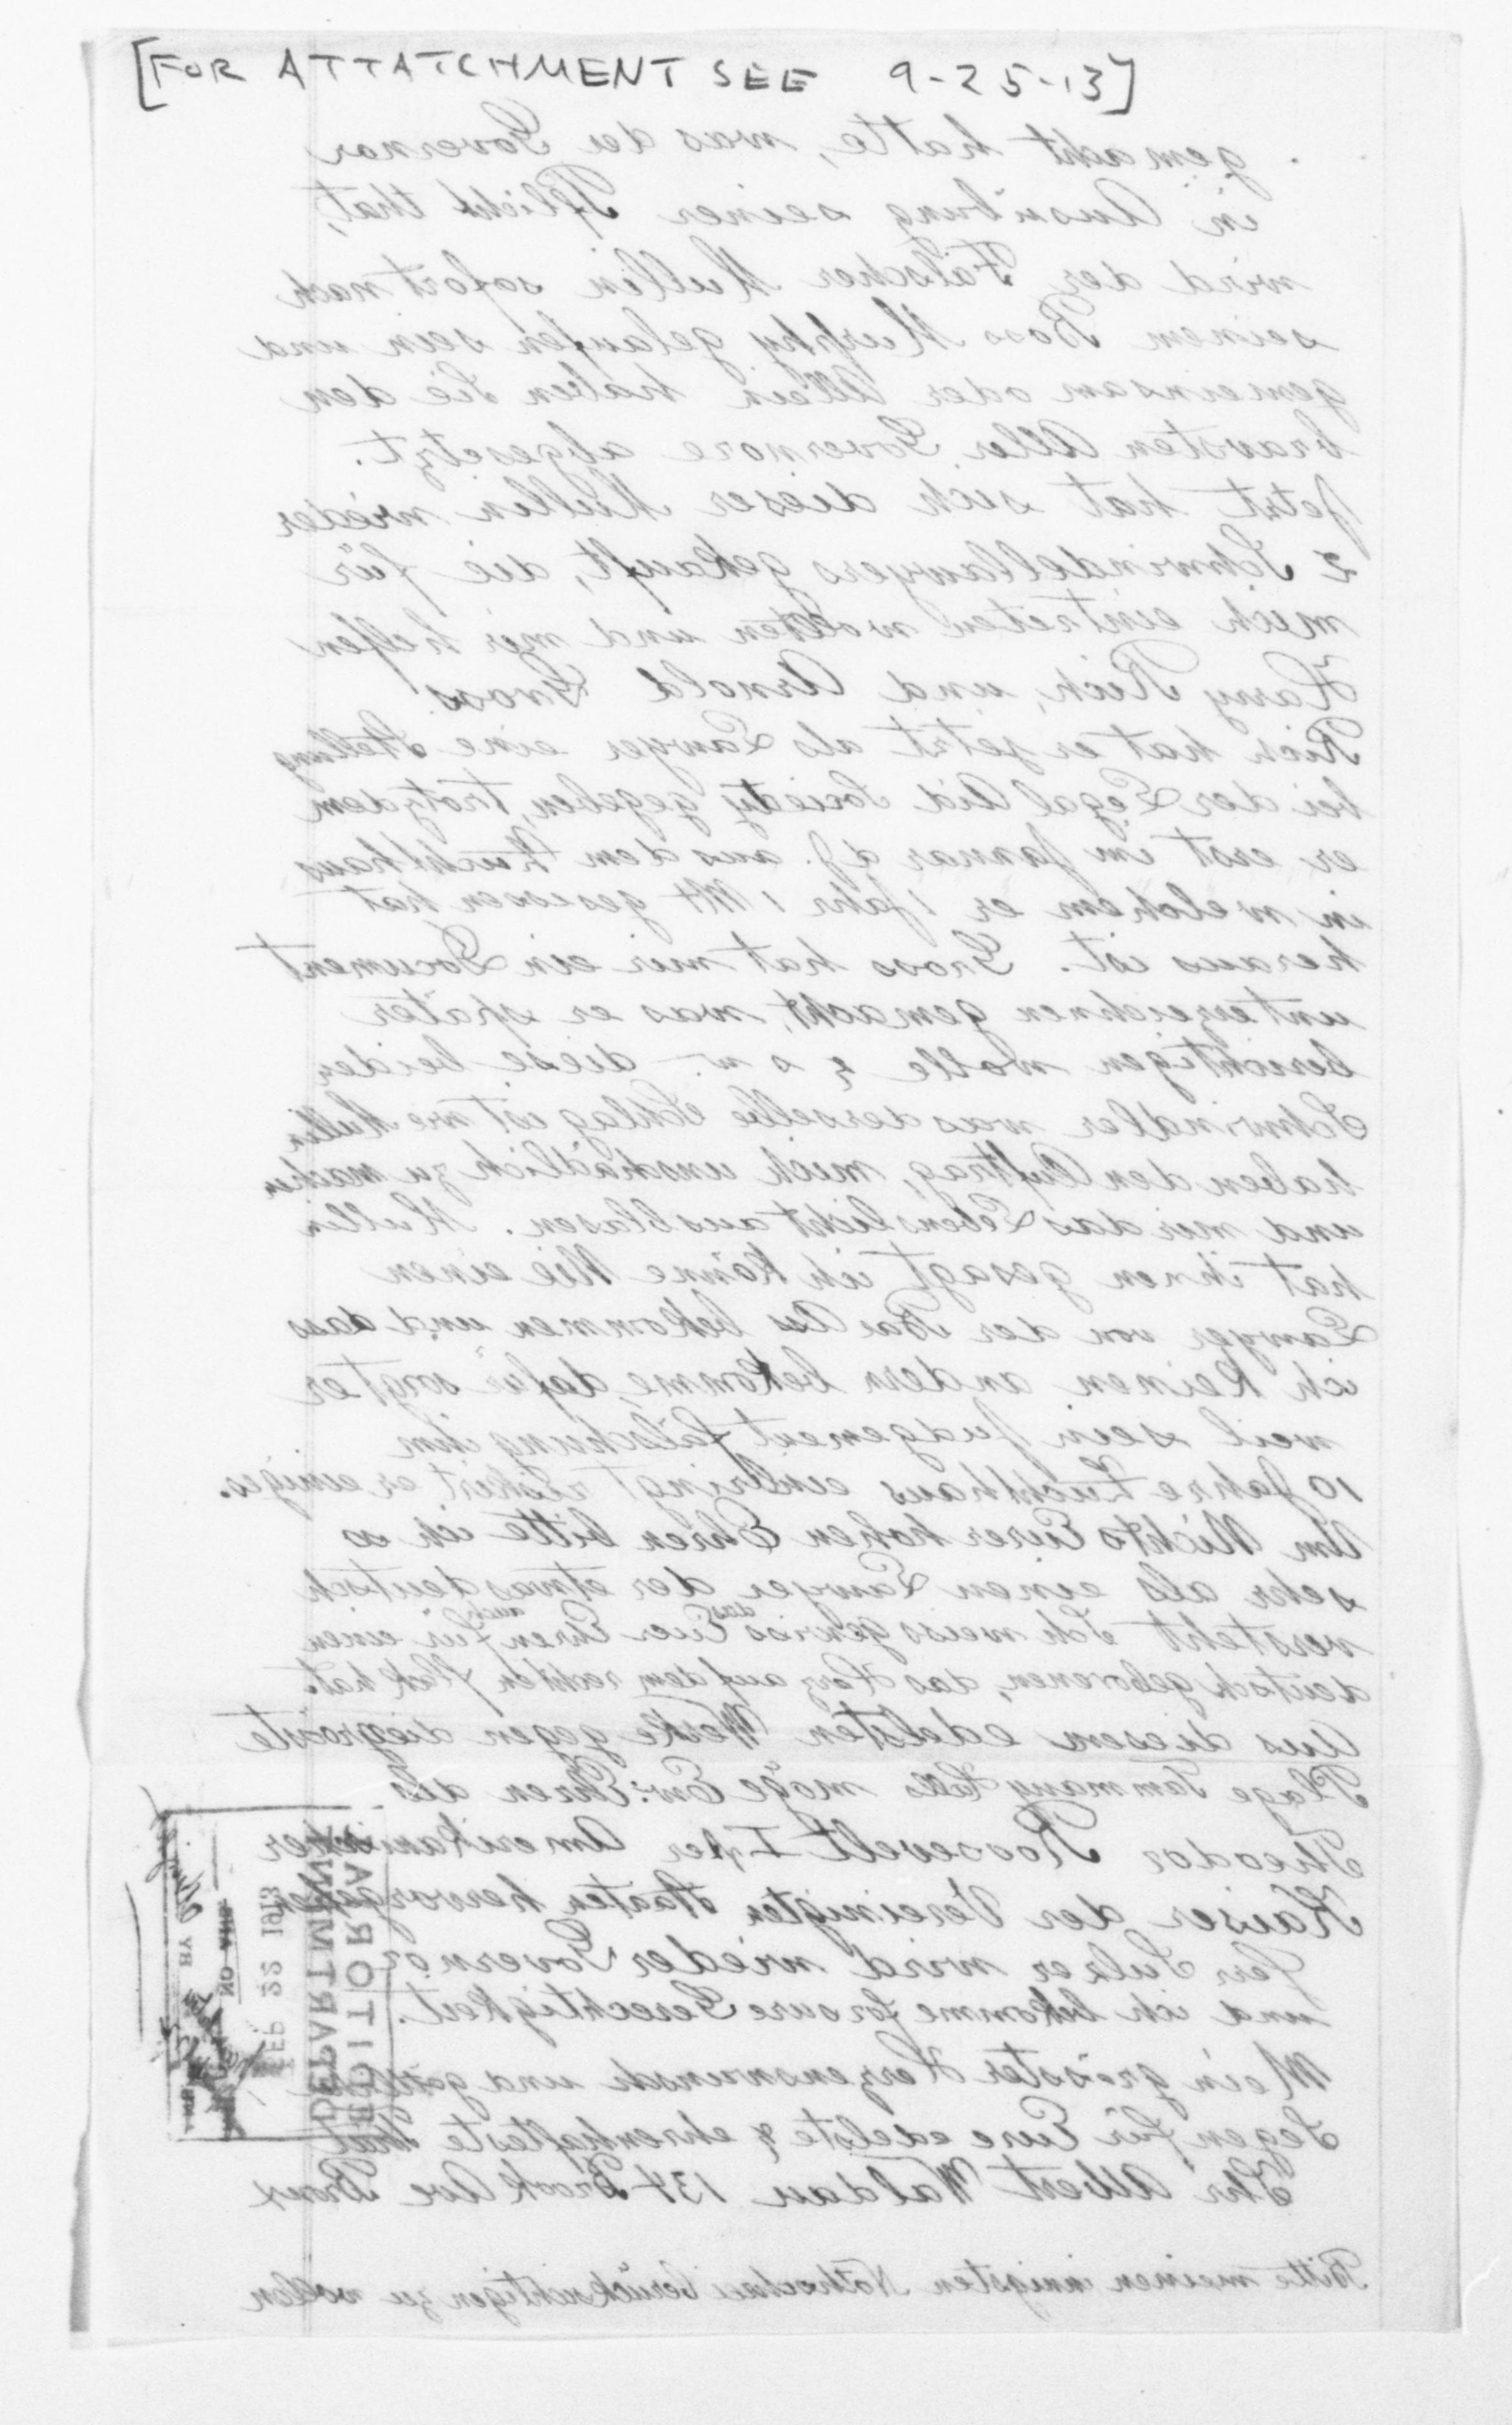 [FOR ATTATCHMENT SEE 9-25-13]
gemacht hatte, was der Governor
in Ausübung seiner Pflicht that,
wird der Fälscher Mullin sofort nach
seinem Boss Murphy gelaufen sein und
gemeinsam oder Allein haben Sie den
bravsten Aller Governore abgesetzt.
Jetzt hat sich dieser Mullin wieder
2 Schwindellawyers gekauft, die für
mich eintreten wollten und mir helfen
Harry Rich, und Arnold Gross.
Rich hat er jetzt als Lawyer eine Stellung
bei der Legal Aid Society gegeben, trotzdem
er erst im Januar d.J. aus dem Zuchthaus
in welchem er 1 Jahr 1 Mt gesessen hat
heraus ist. Gross hat mir ein Document
unterzeichnen gemacht, was er später
berichtigen wolle & s w. diese beider
Schwindler was derselbe Schlag ist wie Mullin
haben den Auftrag, mich unschädlich zu machen
und mir das Lebenslicht ausblasen. Mullin
hat ihnen gesagt ich könne Nie einen
Lawyer von der Bar As bekommen und dass
ich keinen andern bekomme, dafür sorgt er
weil sein Judgement fälschung ihm
10 Jahre Zuchthaus einbringt riskirt er einiges.
Um Nichts Eurer hohen Ehren bitte ich so
sehr als einen Lawyer der etwas deutsch
versteht Ich weiss gewiss dass Euer Ehren auch für einen
deutsch geborenen, das Herz auf dem rechten Fleck hat.
Aus diesem edelsten Werke gegen die grösste
Plage Tammany Halls möge Ew: Ehren als
Theodor Roosevelt I ster Amerikanischer
Kaiser der Vereinigten Staaten hervorgehen
Sulzer wird wieder Governor
und ich bekomme forsure Gerechtigkeit.
Mein grösster Herzenswunsch und göttliche
Segen für Eure edelste & ehrenhafteste That
Ihr Albert Waldau 134 Brook Ave Bronx
Bitte meinen innigsten Nothschrei berücksichtigen zu wollen
EDITORIAL
DEPARTMENT
SEP 22 1913
NO ANS.
BY